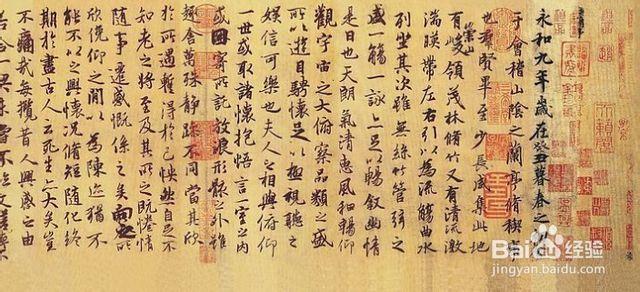 永和九年歲在癸丑暮春之初
于會稽山陰之蘭亭脩稧事
也群賢畢至少長咸集此地
有崇山峻領茂林脩竹又有清流激
湍暎帶左右引以為流觴曲水
列坐其次雖無絲竹管弦之
盛一觴一詠亦足以暢敘幽情
是日也天朗氣清惠風和暢仰
觀宇宙之大俯察品類之盛
所以遊目騁懷足以極視聽之
娛信可樂也夫人之相與俯仰
一世或取諸懷抱悟言一室之內
或因寄所託放浪形骸之外雖
趣舍萬殊靜躁不同當其欣
於所遇蹔得於己怏然自足不
知老之將至及其所之既惓情
隨事遷感慨係之矣向之所
欣俛仰之間以為陳迹猶不
能不以之興懷況脩短隨化終
期於盡古人云死生亦大矣豈
不痛哉每攬昔人興感之由
Baidu经验
jingyan.baidu.com